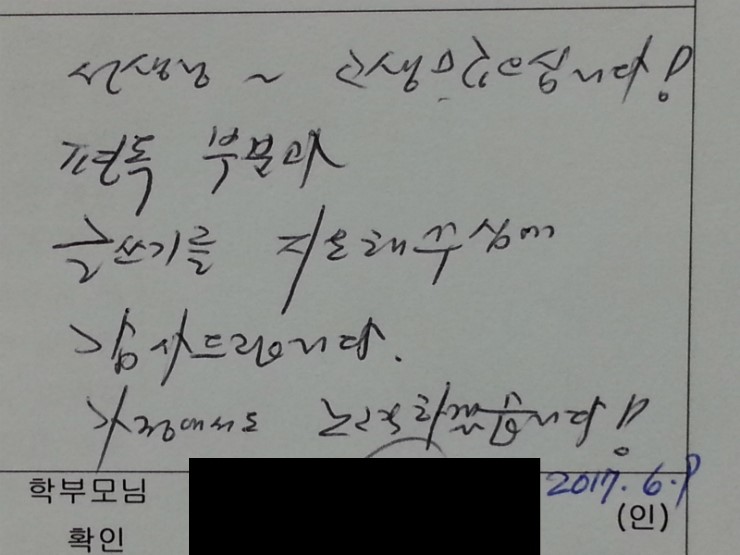 선생님 ~ 고생많으십니다!
편독 부분과
글쓰기를 지도해주심에
감사드립니다.
가정에서도 노력하겠습니다!
학부모님
확인
2017. 6.
(인)